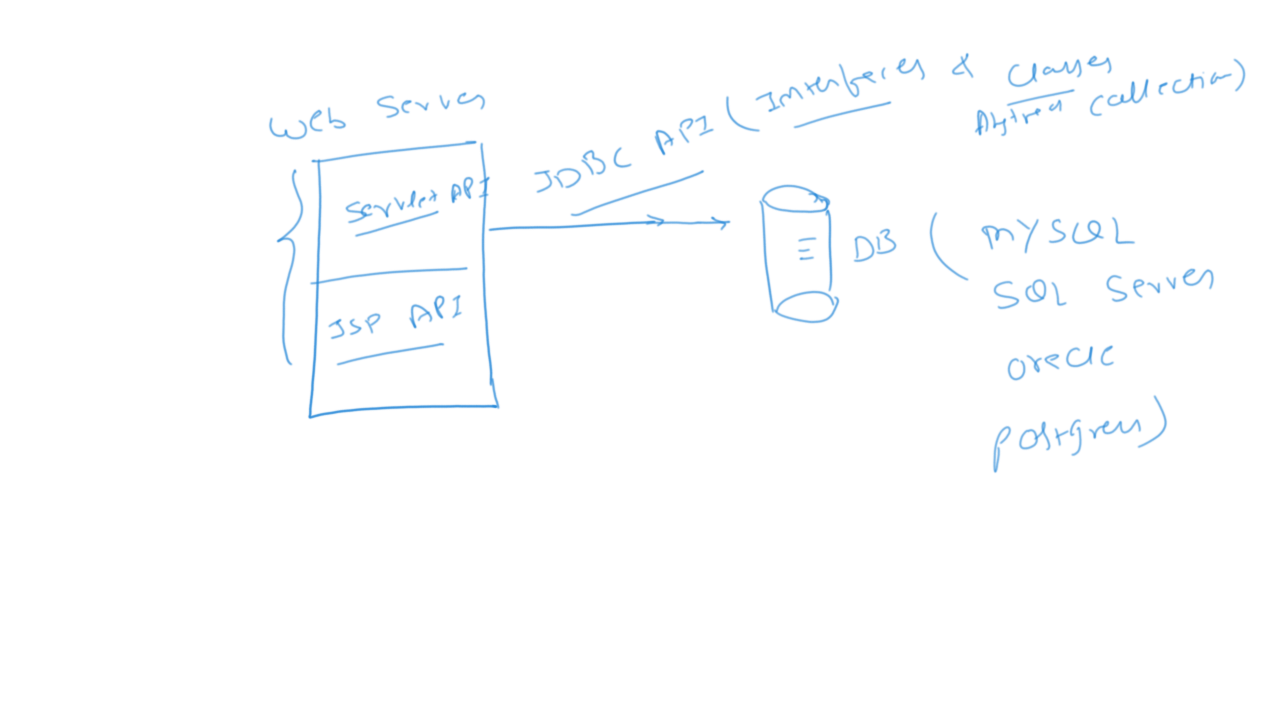 Web Server
Servlet API
JSP API
JDBC API (Interfaces & Classes
Collection)
DB (MYSQL
SQL Server
oracle
postgres)